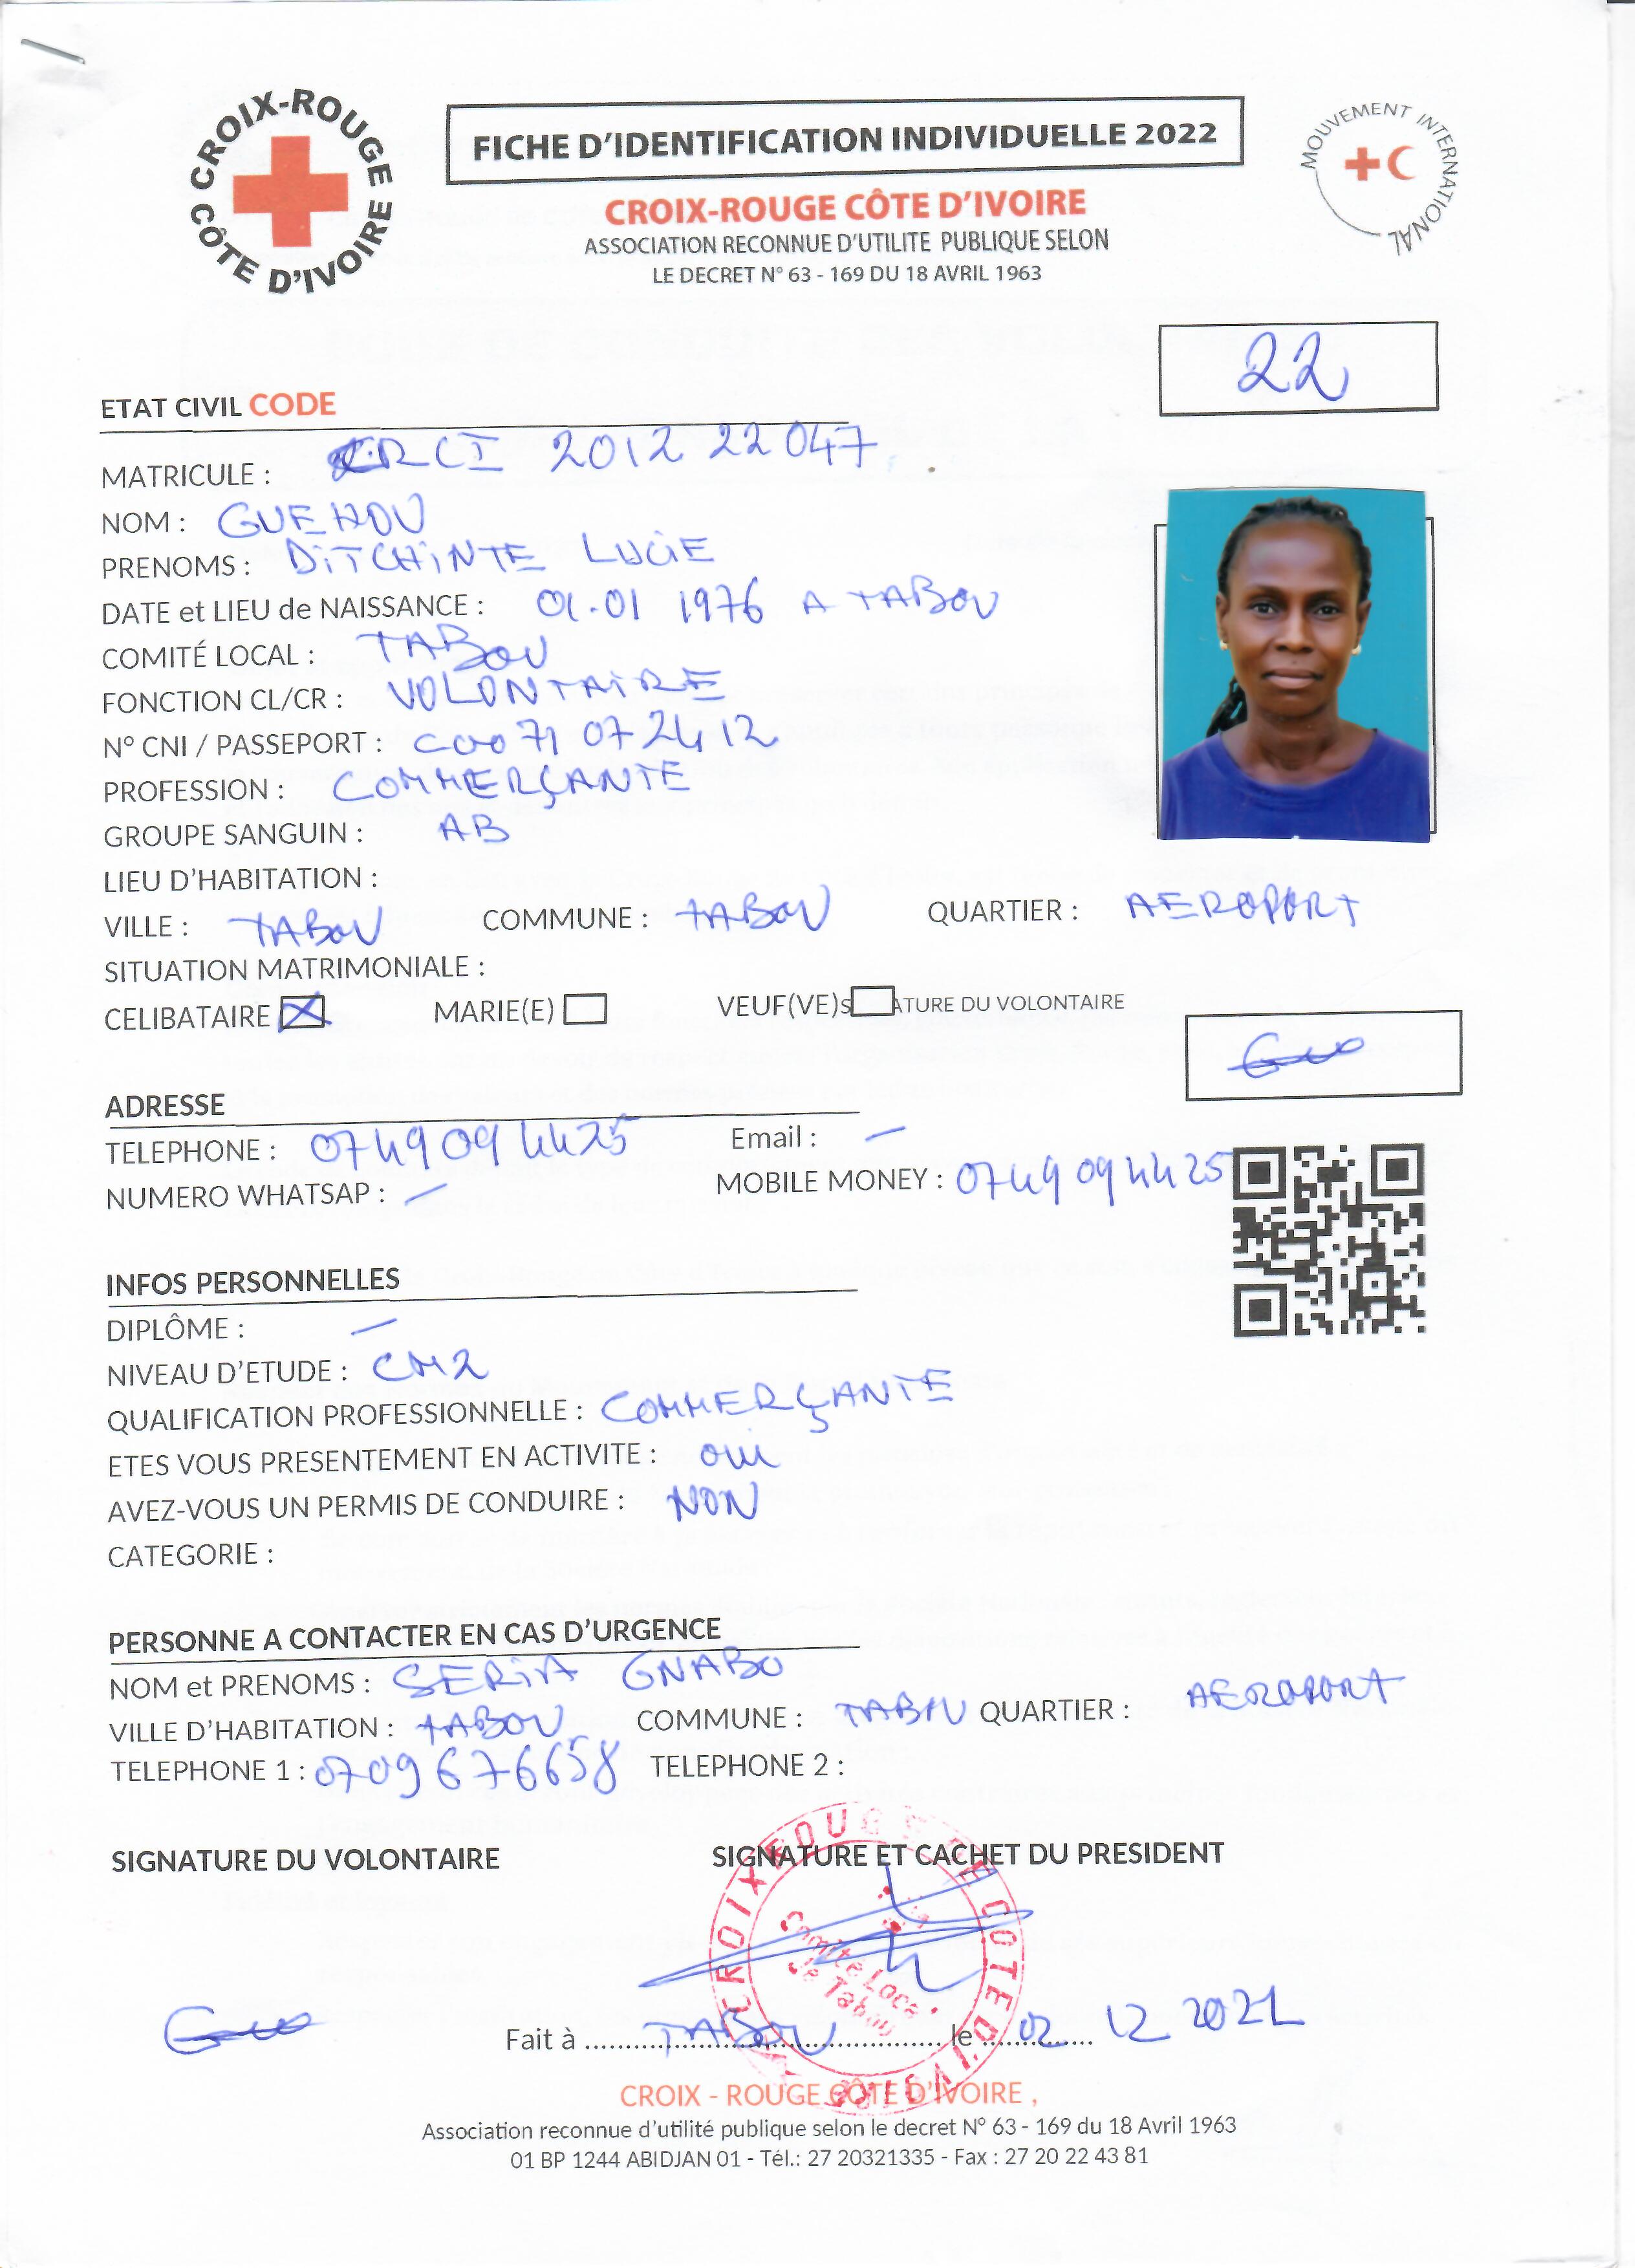 CROIX-ROUGE CÔTE D'IVOIRE
FICHE D'IDENTIFICATION INDIVIDUELLE 2022
MOUVEMENT INTERNATIONAL
CROIX-ROUGE CÔTE D'IVOIRE
ASSOCIATION RECONNUE D'UTILITE PUBLIQUE SELON
LE DECRET N° 63 - 169 DU 18 AVRIL 1963
22
ETAT CIVIL CODE
MATRICULE : CRCI 2012 22 047
NOM : GUEHOU
PRENOMS : DITCHINTE LUCIE
DATE et LIEU de NAISSANCE : 01.01 1976 A TABOU
COMITÉ LOCAL : TABOU
FONCTION CL/CR : VOLONTAIRE
N° CNI / PASSEPORT : C00 71 07 24 12
PROFESSION : COMMERÇANTE
GROUPE SANGUIN : AB
LIEU D'HABITATION :
VILLE : TABOU COMMUNE : TABOU QUARTIER : AEROPORT
SITUATION MATRIMONIALE :
CELIBATAIRE MARIE(E) VEUF(VE) S ATURE DU VOLONTAIRE
ADRESSE
TELEPHONE : 0749 09 4425 Email : —
NUMERO WHATSAP : — MOBILE MONEY : 0749 09 44 25
INFOS PERSONNELLES
DIPLÔME : —
NIVEAU D'ETUDE : CM2
QUALIFICATION PROFESSIONNELLE : COMMERÇANTE
ETES VOUS PRESENTEMENT EN ACTIVITE : OUI
AVEZ-VOUS UN PERMIS DE CONDUIRE : NON
CATEGORIE :
PERSONNE A CONTACTER EN CAS D'URGENCE
NOM et PRENOMS : SERIA GNABO
VILLE D'HABITATION : TABOU COMMUNE : TABOU QUARTIER : AEROPORT
TELEPHONE 1 : 0709 676658 TELEPHONE 2 :
SIGNATURE DU VOLONTAIRE SIGNATURE ET CACHET DU PRESIDENT
CROIX ROUGE DE COTE D'IVOIRE
Comité Local
de Tabou
Fait à TABOU le 02 12 2021
CROIX - ROUGE CÔTE D'IVOIRE ,
Association reconnue d'utilité publique selon le decret N° 63 - 169 du 18 Avril 1963
01 BP 1244 ABIDJAN 01 - Tél.: 27 20321335 - Fax : 27 20 22 43 81